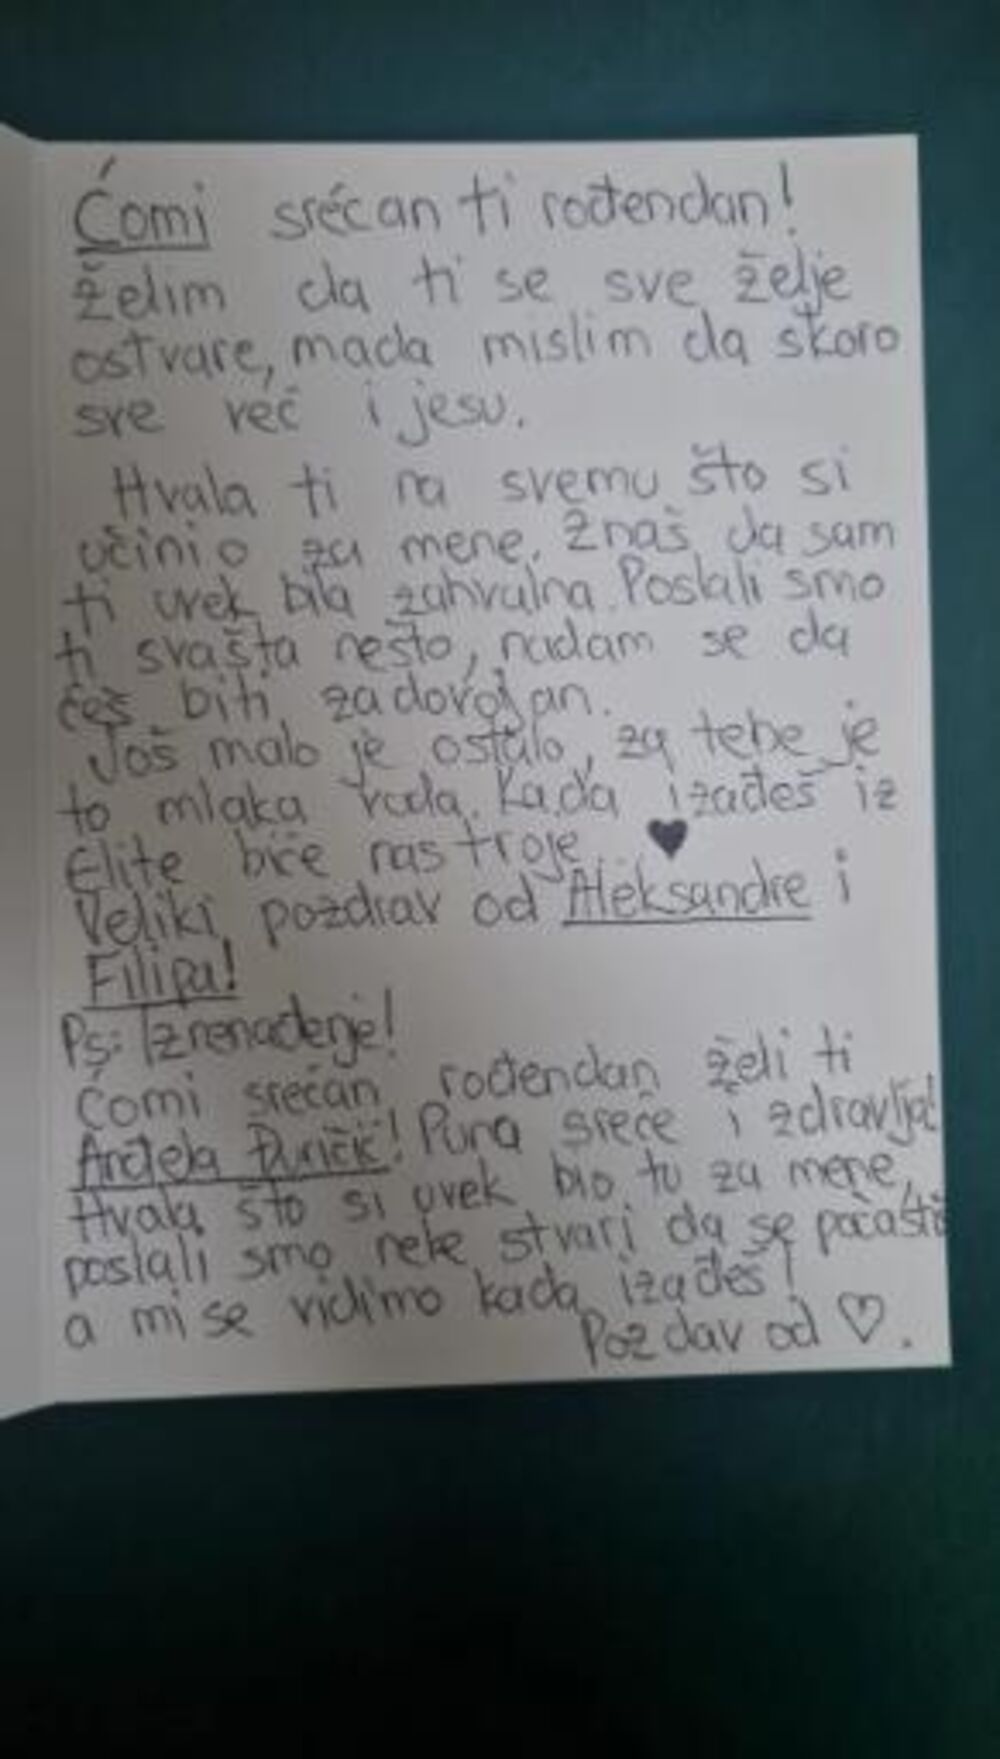 Ćomi srećan ti rođendan!
Želim da ti se sve želje
ostvare, mada mislim da skoro
sve već i jesu.
Hvala ti na svemu što si
učinio za mene. Znaš da sam
ti uvek bila zahvalna. Poslali smo
ti svašta nešto, nadam se da
ćeš biti zadovoljan.
Još malo je ostalo, za tebe je
to mlaka voda. Kada izađeš iz
Elite biće nas troje ♥
Veliki pozdrav od Aleksandre i
Filipa!
Ps: Iznenađenje!
Ćomi srećan rođendan želi ti
Anđela Đuričić! Puno sreće i zdravlja!
Hvala što si uvek bio tu za mene,
poslali smo neke stvari da se počastiš
a mi se vidimo kada izađeš!
Pozdav od ♡.